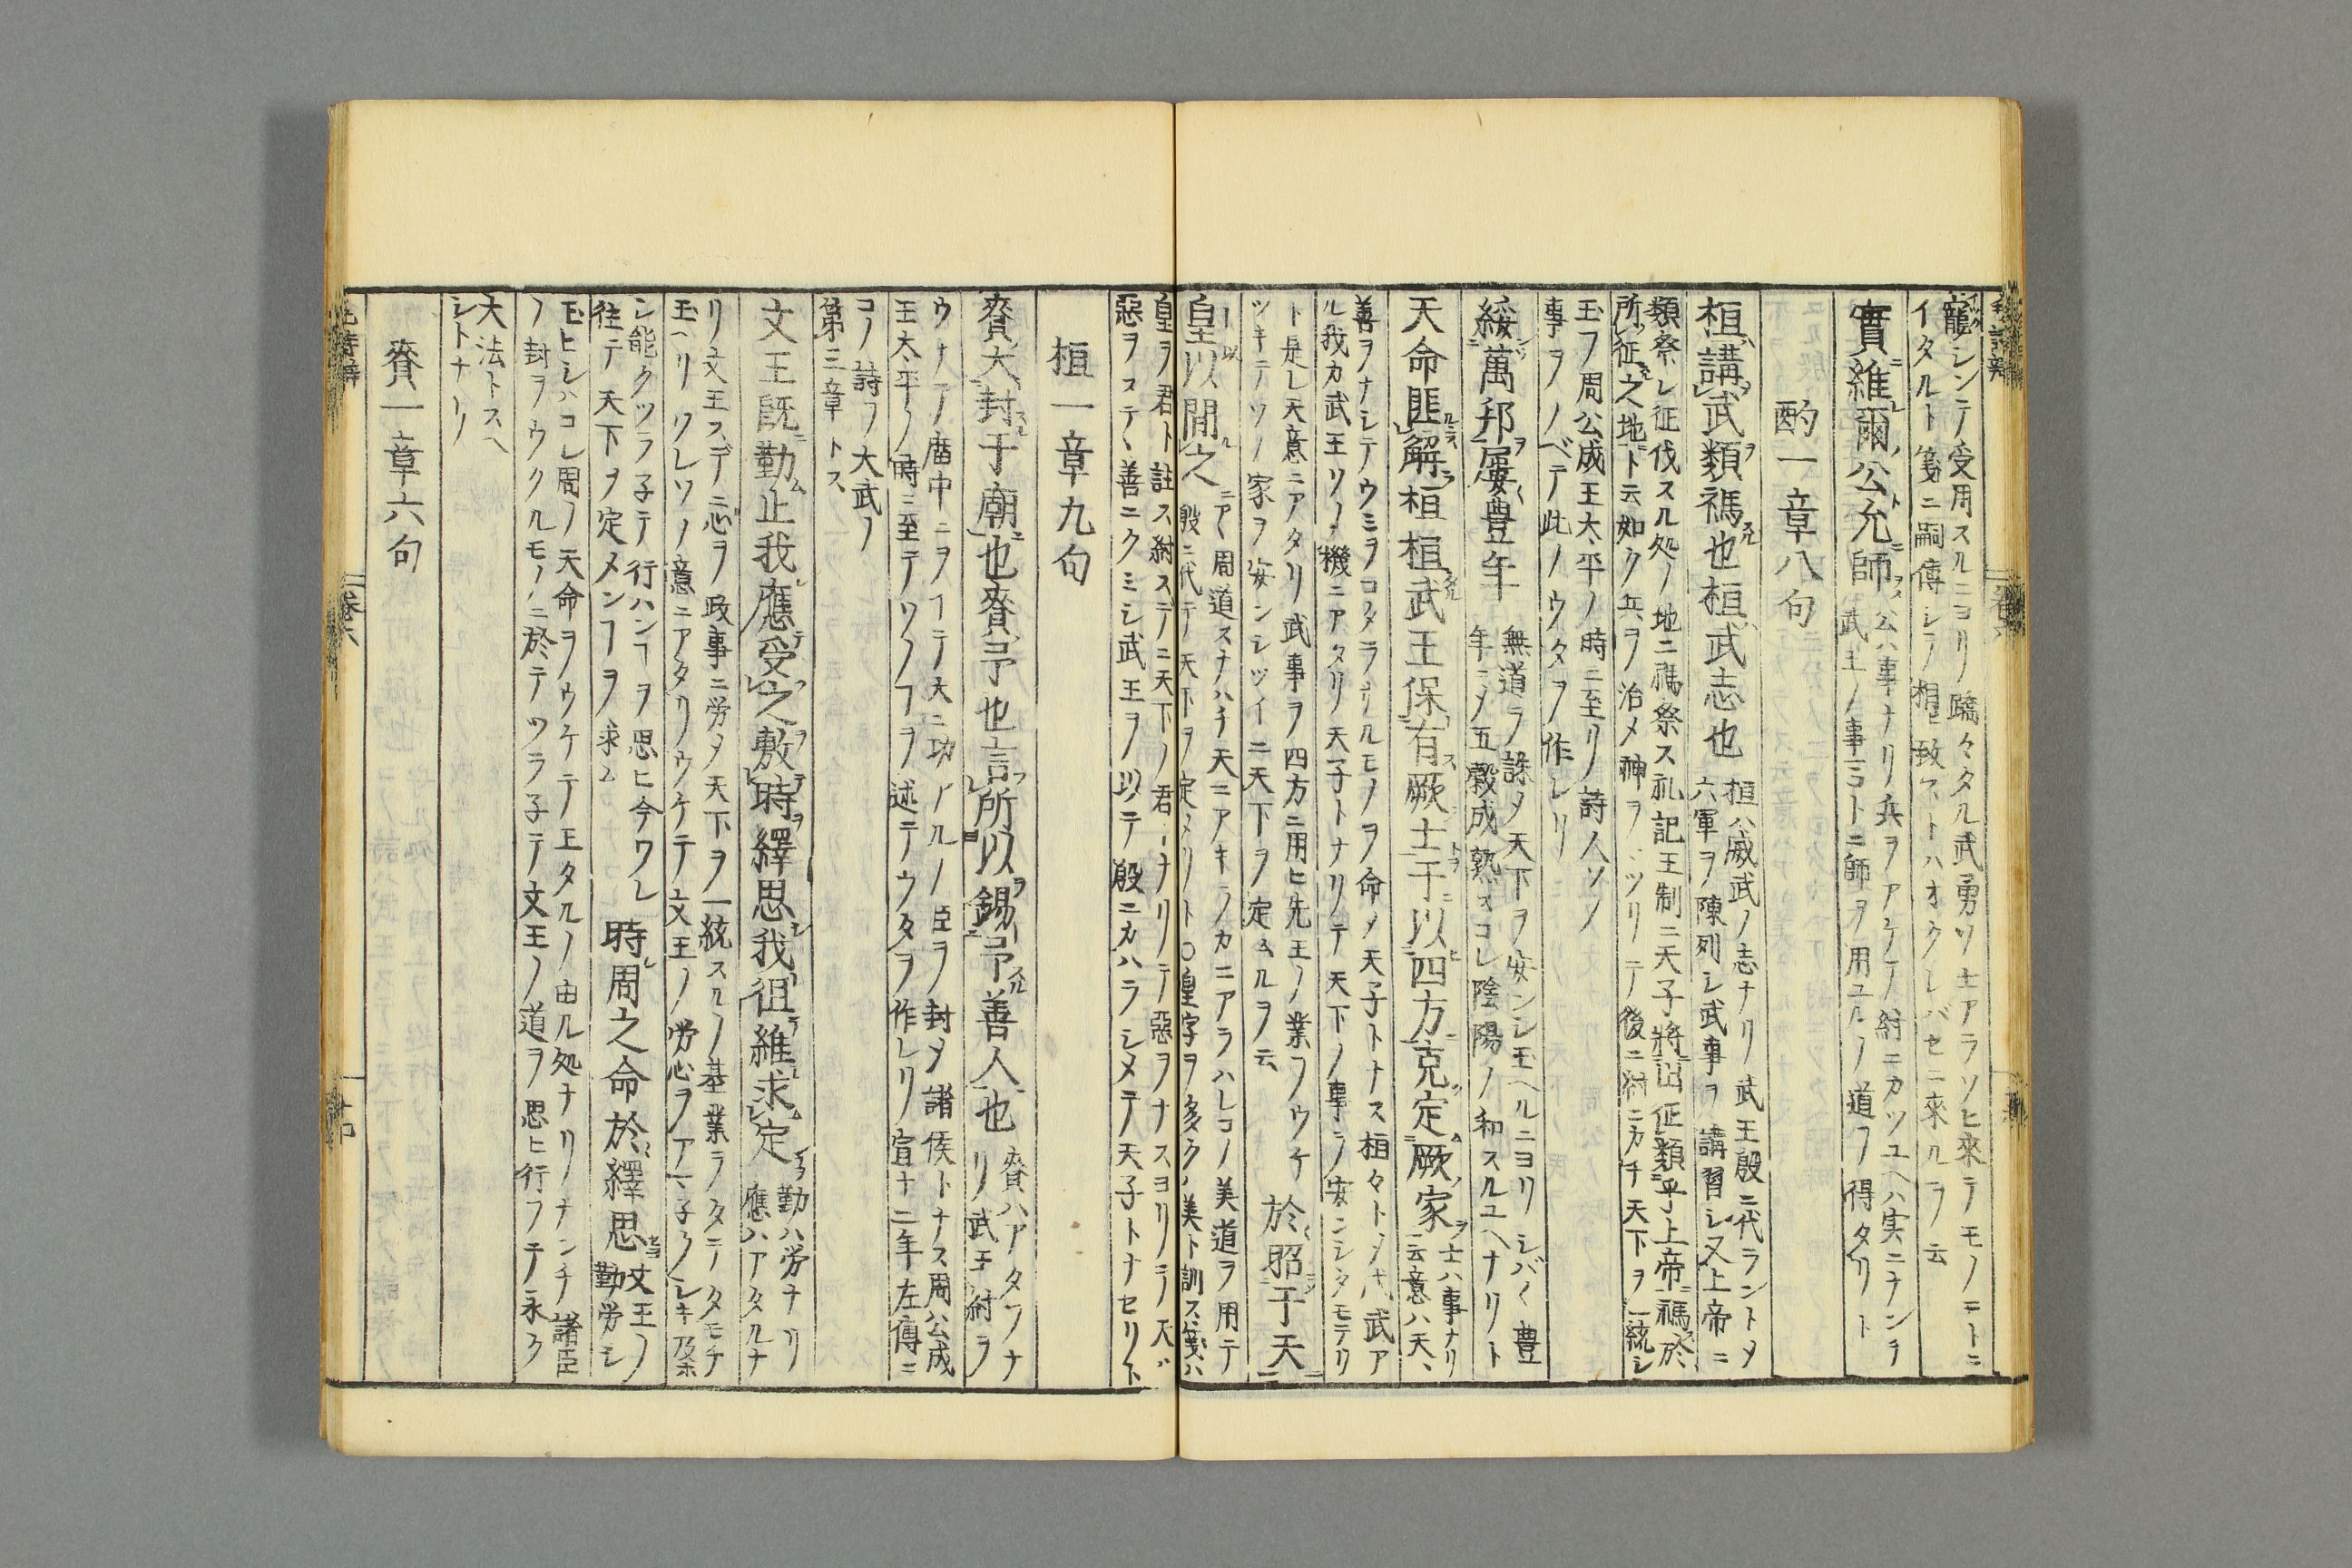 寵シンテ受用スルニヨリ蹻々タル武勇ノ士アラソヒ來テモノコトニ
イタルト箋ニ嗣傳シテ相致ストハオクレバセニ來ルヲ云
實維爾公允師
公ハ事ナリ兵ヲアケテ紂ニカツユヘハ実ニナンチ
武王ノ事コトニ師ヲ用ユルノ道ヲ得タリト
酌一章八句
桓講武類禡也桓武志也
桓ハ威武ノ志ナリ武王殷ニ代ラントメ
六軍ヲ陳列シ武事ヲ講習シ又上帝ニ
類祭シ征伐スル処ノ地ニ禡祭ス礼記王制ニ天子將出征類乎上帝禡於
所征之地ト云如ク兵ヲ治メ神ヲマツリテ後ニ紂ニカチ天下ヲ一統シ
玉フ周公成王太平ノ時ニ至リ詩人ソノ
事ヲノベテ此ノウタヲ作レリ
綏萬邦屢豊年
無道ヲ誅メ天下ヲ安ンシ玉ヘルニヨリシバ〱豊
年ニメ五穀成熟スコレ陰陽ノ和スルユヘナリト
天命匪解桓桓武王保有厥士于以四方克定厥家
士ハ事ナリ
云意ハ天ハ
善ヲナシテウミヲコタラサルモノヲ命メ天子トナス桓々トメ武ア
ル我カ武王ソノ機ニアタリ天子トナリテ天下ノ事ヲ安ンシタモテリ
ト是レ天意ニアタリ武事ヲ四方ニ用ヒ先王ノ業ヲウケ
ツキテソノ家ヲ安ンシツイニ天下ヲ定ムルヲ云
於昭于天
皇以間之
周道スナハチ天ニアキラカニアラハレコノ美道ヲ用テ
殷ニ代テ天下ヲ定メリト〇皇字ヲ多ク美ト訓ス箋ハ
皇ヲ君ト註ス紂スデニ天下ノ君トナリテ惡ヲナスヨリテ天ガ
惡ヲステ善ニクミシ武王ヲ以テ殷ニカハラシメテ天子トナセリト
桓一章九句
賚大封于廟也賚予也言所以錫予善人也
賚ハアタフナ
リ武王紂ヲ
ウチテ庿中ニヲイテ大ニ功アルノ臣ヲ封メ諸侯トナス周公成
王太平ノ時ニ至テソノコヲ述テウタヲ作レリ宣十二年左傳ニ
コノ詩ヲ大武ノ
第三章トス
文王既勤止我應受之敷時繹思我徂維求定
勤ハ労ナリ
應ハアタルナ
リ文王スデニ心ヲ政事ニ労メ天下ヲ一統スルノ基業ヲタテタモチ
玉ヘリワレソノ意ニアタリウケテ文王ノ労心ヲアマ子クシキ及
ン能クツラ子テ行ハンコヲ思ヒ今ワレ
往テ天下ヲ定メンコヲ求ム
時周之命於繹思
文王ノ
勤労シ
玉ヒシハコレ周ノ天命ヲウケテ王タルノ由ル処ナリナンチ諸臣
ノ封ヲウクルモノニ於テツラ子テ文王ノ道ヲ思ヒ行フテ永ク
大法トスヘ
シトナリ
賚一章六句
卷六